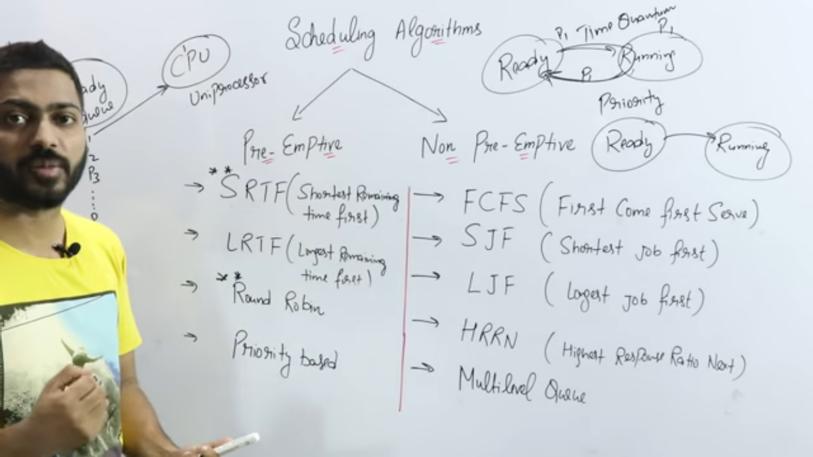 Scheduling Algorithms
CPU
Uniprocessor
ady
ueue
2
P3
P1 Time Quantum
P1
Ready
Running
P1
Priority
Ready
Running
Pre-Emptive
** SRTF (Shortest Remaining
time first)
LRTF (Longest Remaining
time first)
** Round Robin
Priority based
Non Pre-Emptive
FCFS (First Come first Serve)
SJF (Shortest Job first)
LJF (Longest Job first)
HRRN (Highest Response Ratio Next)
Multilevel Queue